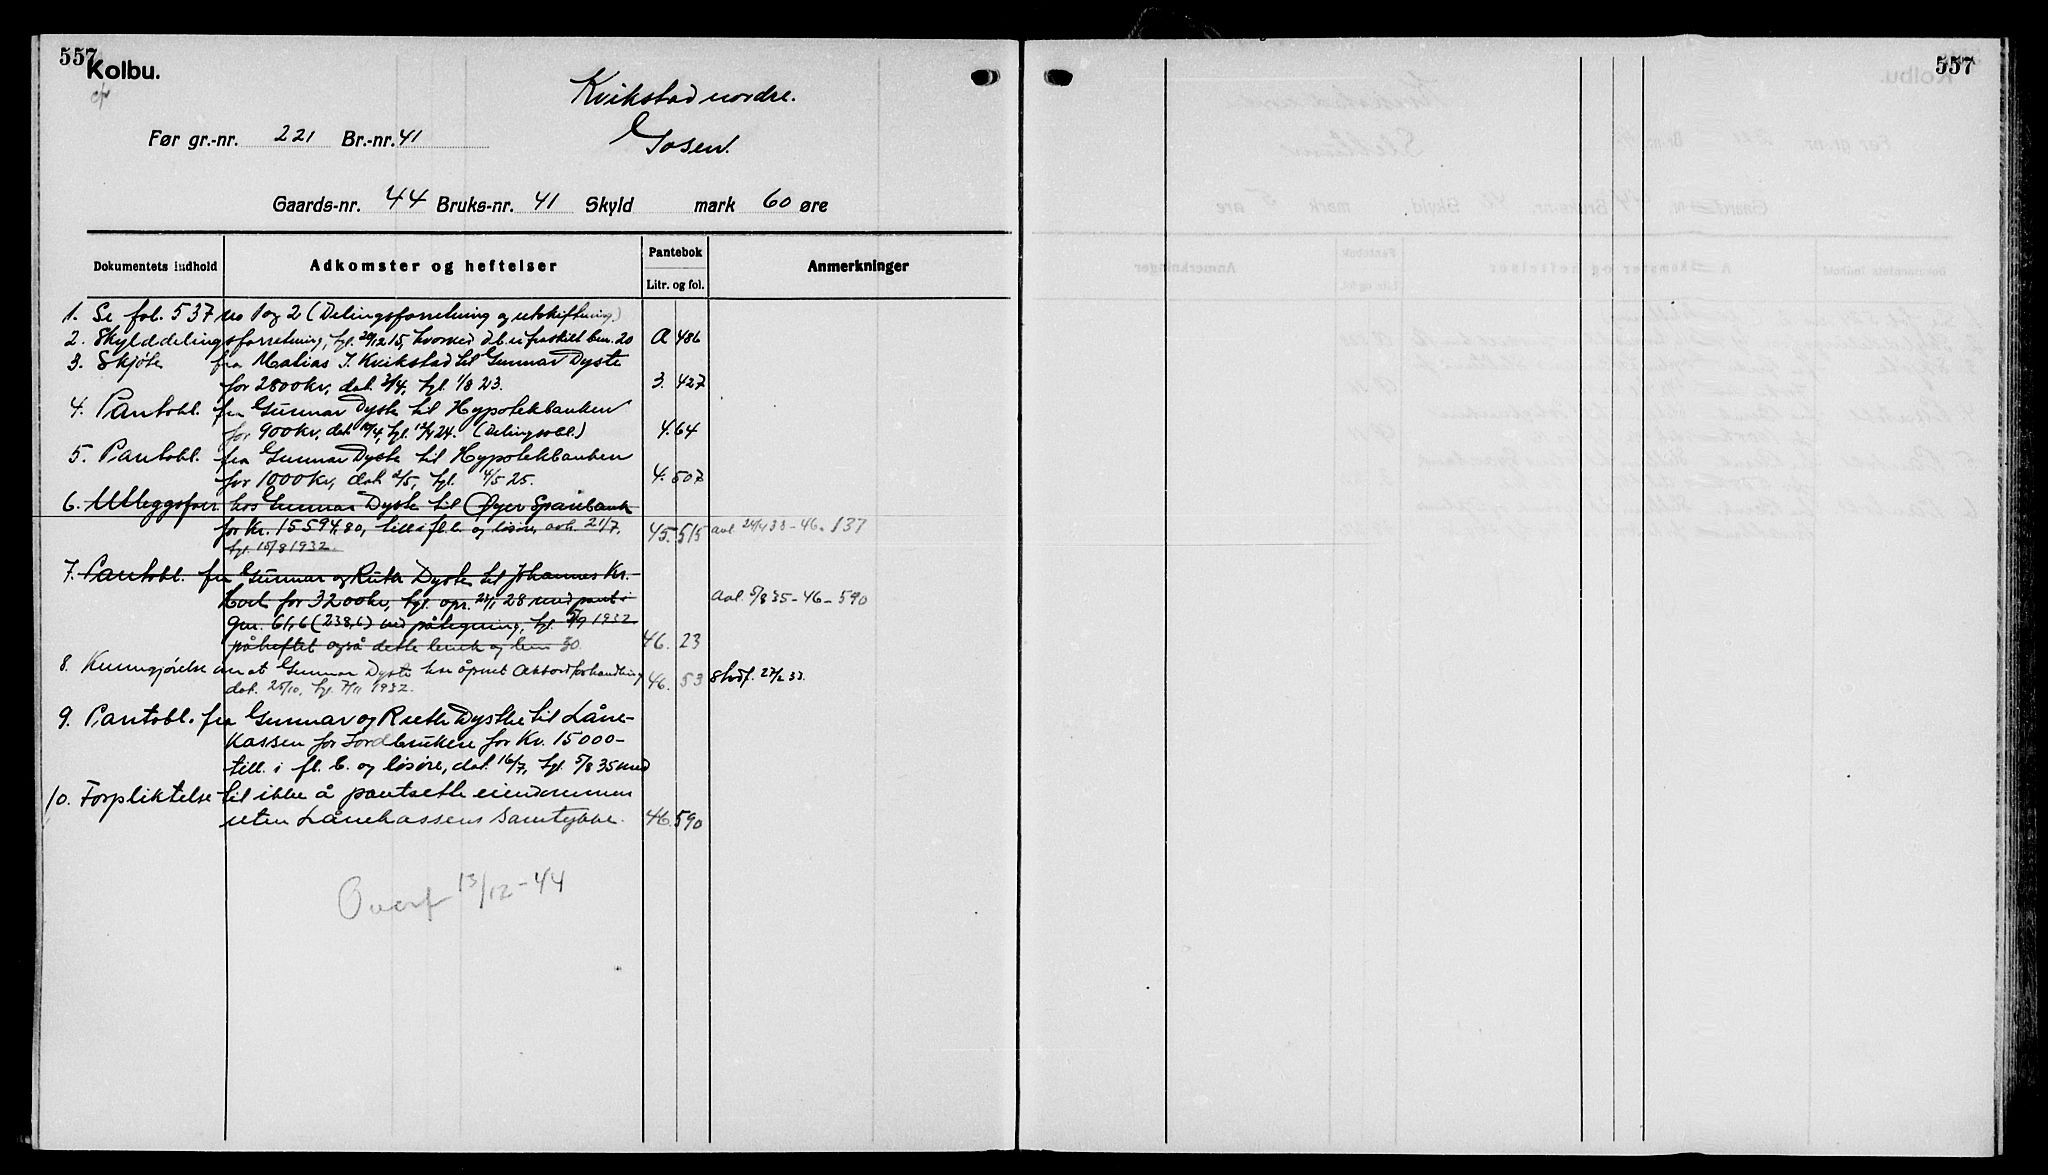 557
Kolbu.
Kvikstad nordre.
Før gr.-nr. 221 Br.-nr. 41
Gosen.
Gaards-nr. 44 Bruks-nr. 41 Skyld mark 60 øre
Dokumentets indhold Adkomster og heftelser Pantebok Anmerkninger
Litr. og fol.
1. Se fol. 537 no 1 og 2 (Delingsforretning og utskiftning)
2. Skylddelingsforretning, tgl. 20/12 15, hvorved d.b. er fraskilt bnr. 20 A 486
3. Skjøte fra Matias J. Kvikstad til Gunnar Dyste
for 2800 kr, dat. 3/4, tgl. 1/8 23. 3. 427
4. Pantobl. fra Gunnar Dyste til Hypotekbanken
for 900 kr, dat. 10/4, tgl. 12/4 24. (Delingsobl.) 4. 64
5. Pantobl. fra Gunnar Dyste til Hypotekbanken
for 1000 kr, dat. 2/5, tgl. 4/5 25. 4. 507
6. Utleggsforr. hos Gunnar Dyste til Øyer Sparebank
for kr. 15594,80, till. i fl. b. og løsøre, avh. 21/7,
tgl. 15/8 1932. 45. 515 avl. 24/4 33 - 46 - 137
7. Pantobl. fra Gunnar og Ruth Dyste til Johannes Kr.
for 3200 kr, tgl. opr. 24/1 28 med pant i avl. 5/8 35 - 46 - 590
gnr. 61,6 (238,6) ved påtegning, tgl. 5/9 1932
påheftet også dette bruk og bnr 30 46. 23
8. Kunngjørelse om at Gunnar Dyste har åpnet Akkordforhandling
dat. 25/10, tgl. 7/11 1932. 46. 53 27/2 33.
9. Pantobl. fra Gunnar og Ruth Dyste til Låne-
kassen for Jordbrukere for Kr. 15000-
till. i fl. b. og løsøre, dat. 16/7, tgl. 5/8 35 med
10. Forpliktelse til ikke å pantsette eiendommen
uten Lånekassens samtykke. 46. 590
Overf 13/12 - 44
557